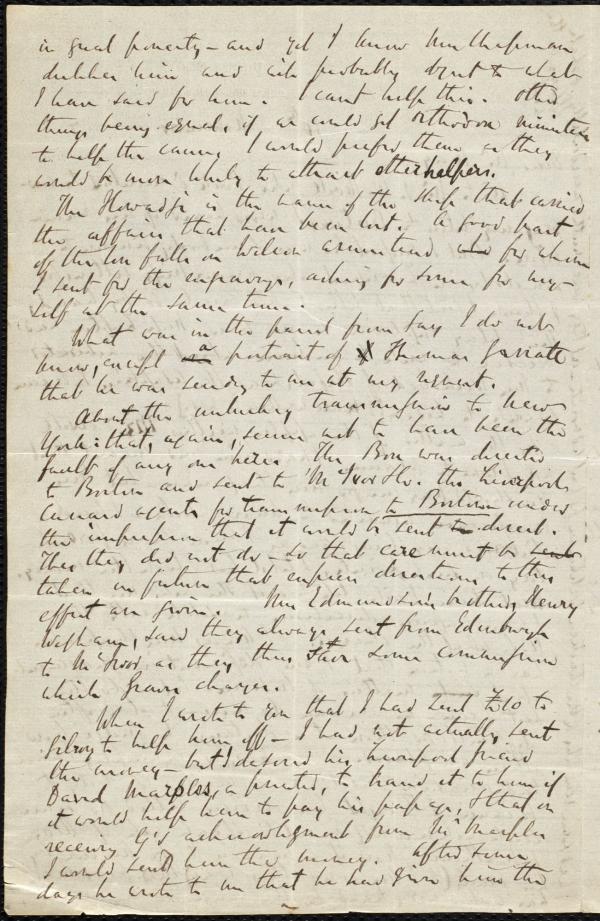 in great poverty – and yet I know Mrs Chapman
dislikes him and will probably object to what
I have said for him. I cant help this. Other
things being equal, if we could get orthodox ministers
to help the cause I would prefer them as they
would be more likely to attract other helpers.
The Howadji is the name of the ship that carried
the affairs that have been lost. A good part
of the loss falls on Webb for whom
I sent for the engravings, asking for some for my-
self at the same time.
What was in the parcel from Say I do not
know, except a portrait of Thomas
that he was sending to me at my request.
About the unlucky transmission to New
York: that, again, seems not to have been the
fault of any one here. The Box was directed
to Boston and sent to McIvor & Co. the Liverpool
Cunard agents for transmission to Boston under
the impression that it would be sent to direct.
This they did not do – so that care must be sent
taken in future that express directions to this
effect are given. Mrs Edmundson's brother, Henry
Wigham, said they always sent from Edinburgh
to McIvor as they thus save some commission
which Brown charges.
When I wrote to you that I had sent £10 to
Gilroy to help him off – I had not actually sent
the money – but I desired his Liverpool friend
David Marples, a printer, to hand it to him if
it would help him to pay his passage, & that on
receiving G's acknowledgment from Mr Marples
I would send him the money. After some
days he wrote to me that he had given him the